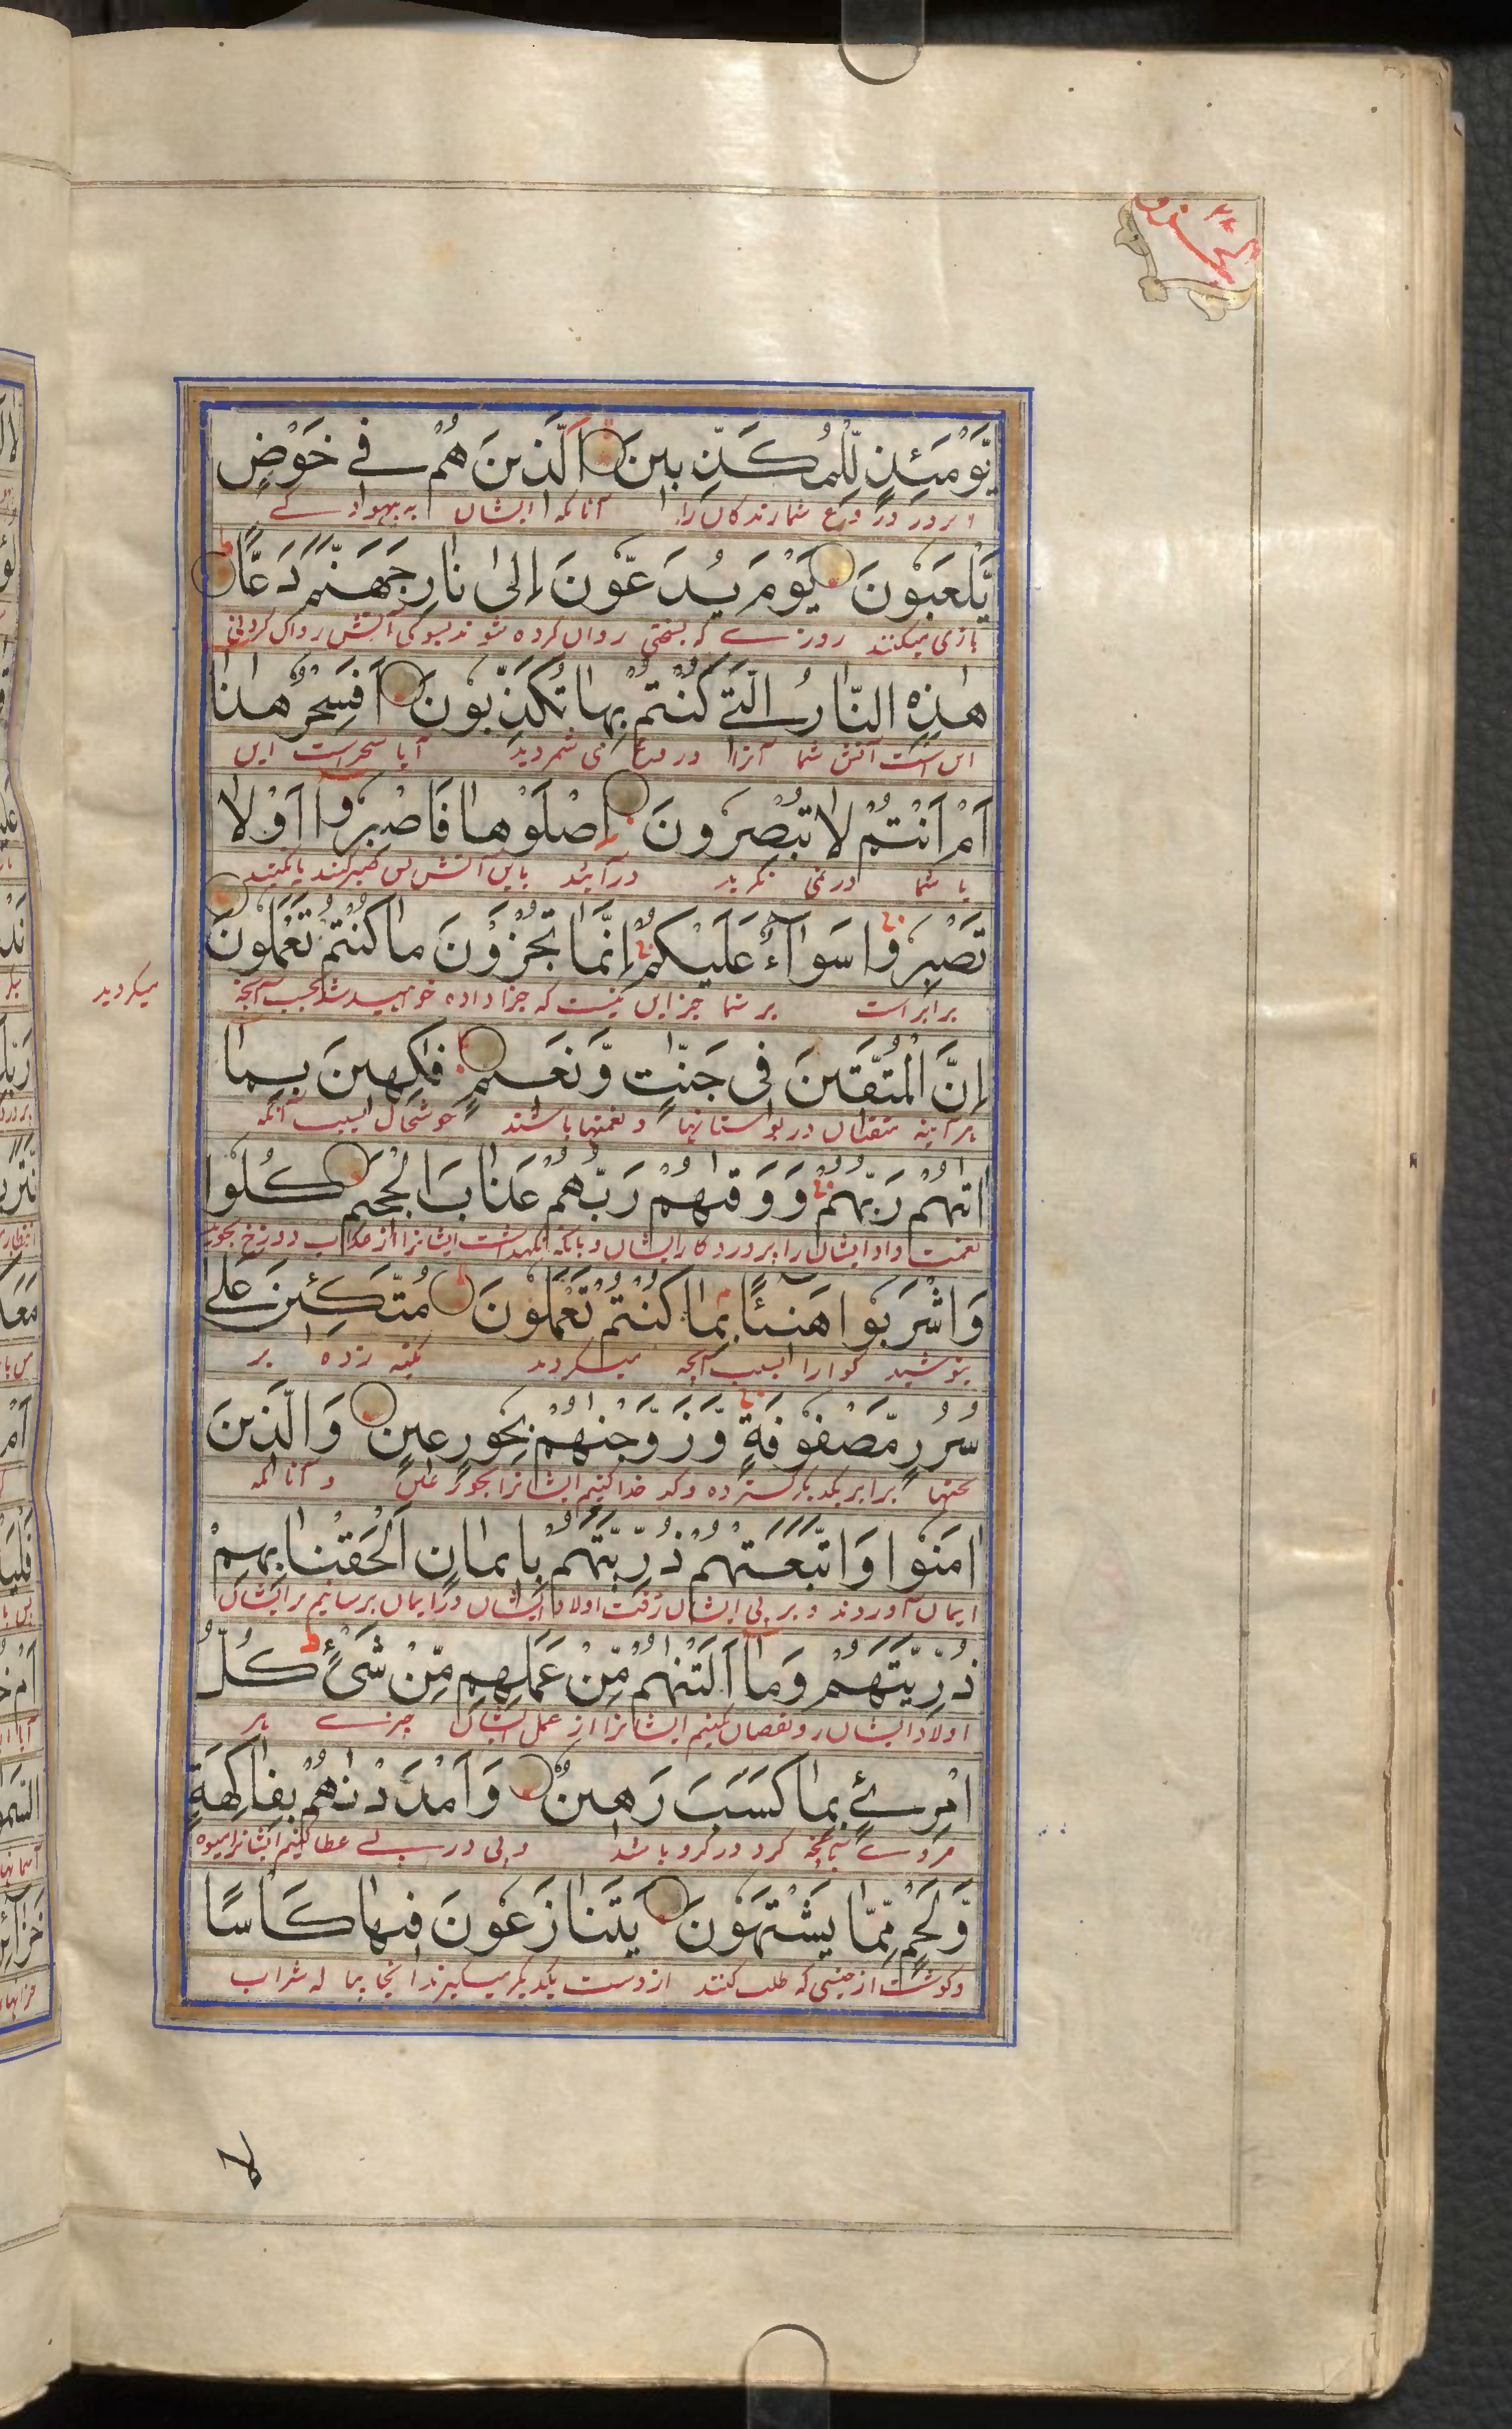 يَّوْمَئِذٍ لِّلْمُكَذِّبِينَ الَّذِينَ هُمْ فِي خَوْضٍ
دروغ شمارندگان را آنانکه ایشان
يَّلْعَبُونَ يَوْمَ يُدَعُّونَ إِلىٰ نَارِ جَهَنَّمَ دَعًّا
بازی میکنند روزے که بسختی روان کرده شوند بسوی آتش روان کردنی
هٰذِهِ النَّارُ الَّتِي كُنْتُمْ بِهَا تُكَذِّبُونَ أَفَسِحْرٌ هٰذَا
این است آتش شما آنرا دروغ می شمردید آیا سحر است این
أَمْ أَنْتُمْ لَا تُبْصِرُونَ اِصْلَوْهَا فَاصْبِرُوا أَوْ لَا
یا شما نمی نگرید درآیید باین آتش پس صبر کنید یا نکنید
تَصْبِرُوا سَوَآءٌ عَلَيْكُمْ إِنَّمَا تُجْزَوْنَ مَا كُنْتُمْ تَعْمَلُونَ
برابر است بر شما جز این نیست که جزا داده خواهید شد بحسب آنچه
میکردید
إِنَّ الْمُتَّقِينَ فِي جَنّٰتٍ وَّنَعِيمٍ فٰكِهِينَ بِمَا
هر آینه متقیان در بوستانها و نعمتها باشند خوشحال بسبب آنکه
اٰتٰهُمْ رَبُّهُمْ وَوَقٰهُمْ رَبُّهُمْ عَذَابَ الْجَحِيمِ كُلُوا
نعمت داد ایشان را پروردگار ایشان و بآنکه نگهداشت ایشانرا از عذاب دوزخ بخورید
وَاشْرَبُوا هَنِيئًا بِمَا كُنْتُمْ تَعْمَلُونَ مُتَّكِئِينَ عَلٰى
بنوشید گوارا بسبب آنچه میکردید تکیه زده بر
سُرُرٍ مَّصْفُوفَةٍ وَّزَوَّجْنٰهُمْ بِحُورٍ عِينٍ وَالَّذِينَ
تختها برابر یکدیگر گسترده و کدخدا کنیم ایشانرا بحور عین و آنانکه
اٰمَنُوا وَاتَّبَعَتْهُمْ ذُرِّيَّتُهُمْ بِإِيمَانٍ أَلْحَقْنَا بِهِمْ
ایمان آوردند و بر پی ایشان رفت اولاد ایشان در ایمان برسانیم بر ایشان
ذُرِّيَّتَهُمْ وَمَا أَلَتْنٰهُمْ مِّنْ عَمَلِهِمْ مِّنْ شَيْءٍ كُلُّ
اولاد ایشان و نقصان نکنیم ایشانرا از عمل ایشان چیزے هر
امْرِئٍ بِمَا كَسَبَ رَهِينٌ وَأَمْدَدْنٰهُمْ بِفَاكِهَةٍ
مردے بآنچه کرد در گرو باشد و پی در پے عطا کنیم ایشانرا میوه
وَّلَحْمٍ مِّمَّا يَشْتَهُونَ يَتَنَازَعُونَ فِيهَا كَأْسًا
و گوشت از جنسی که طلب کنند از دست یکدیگر میگیرند آنجا پیاله شراب
لا